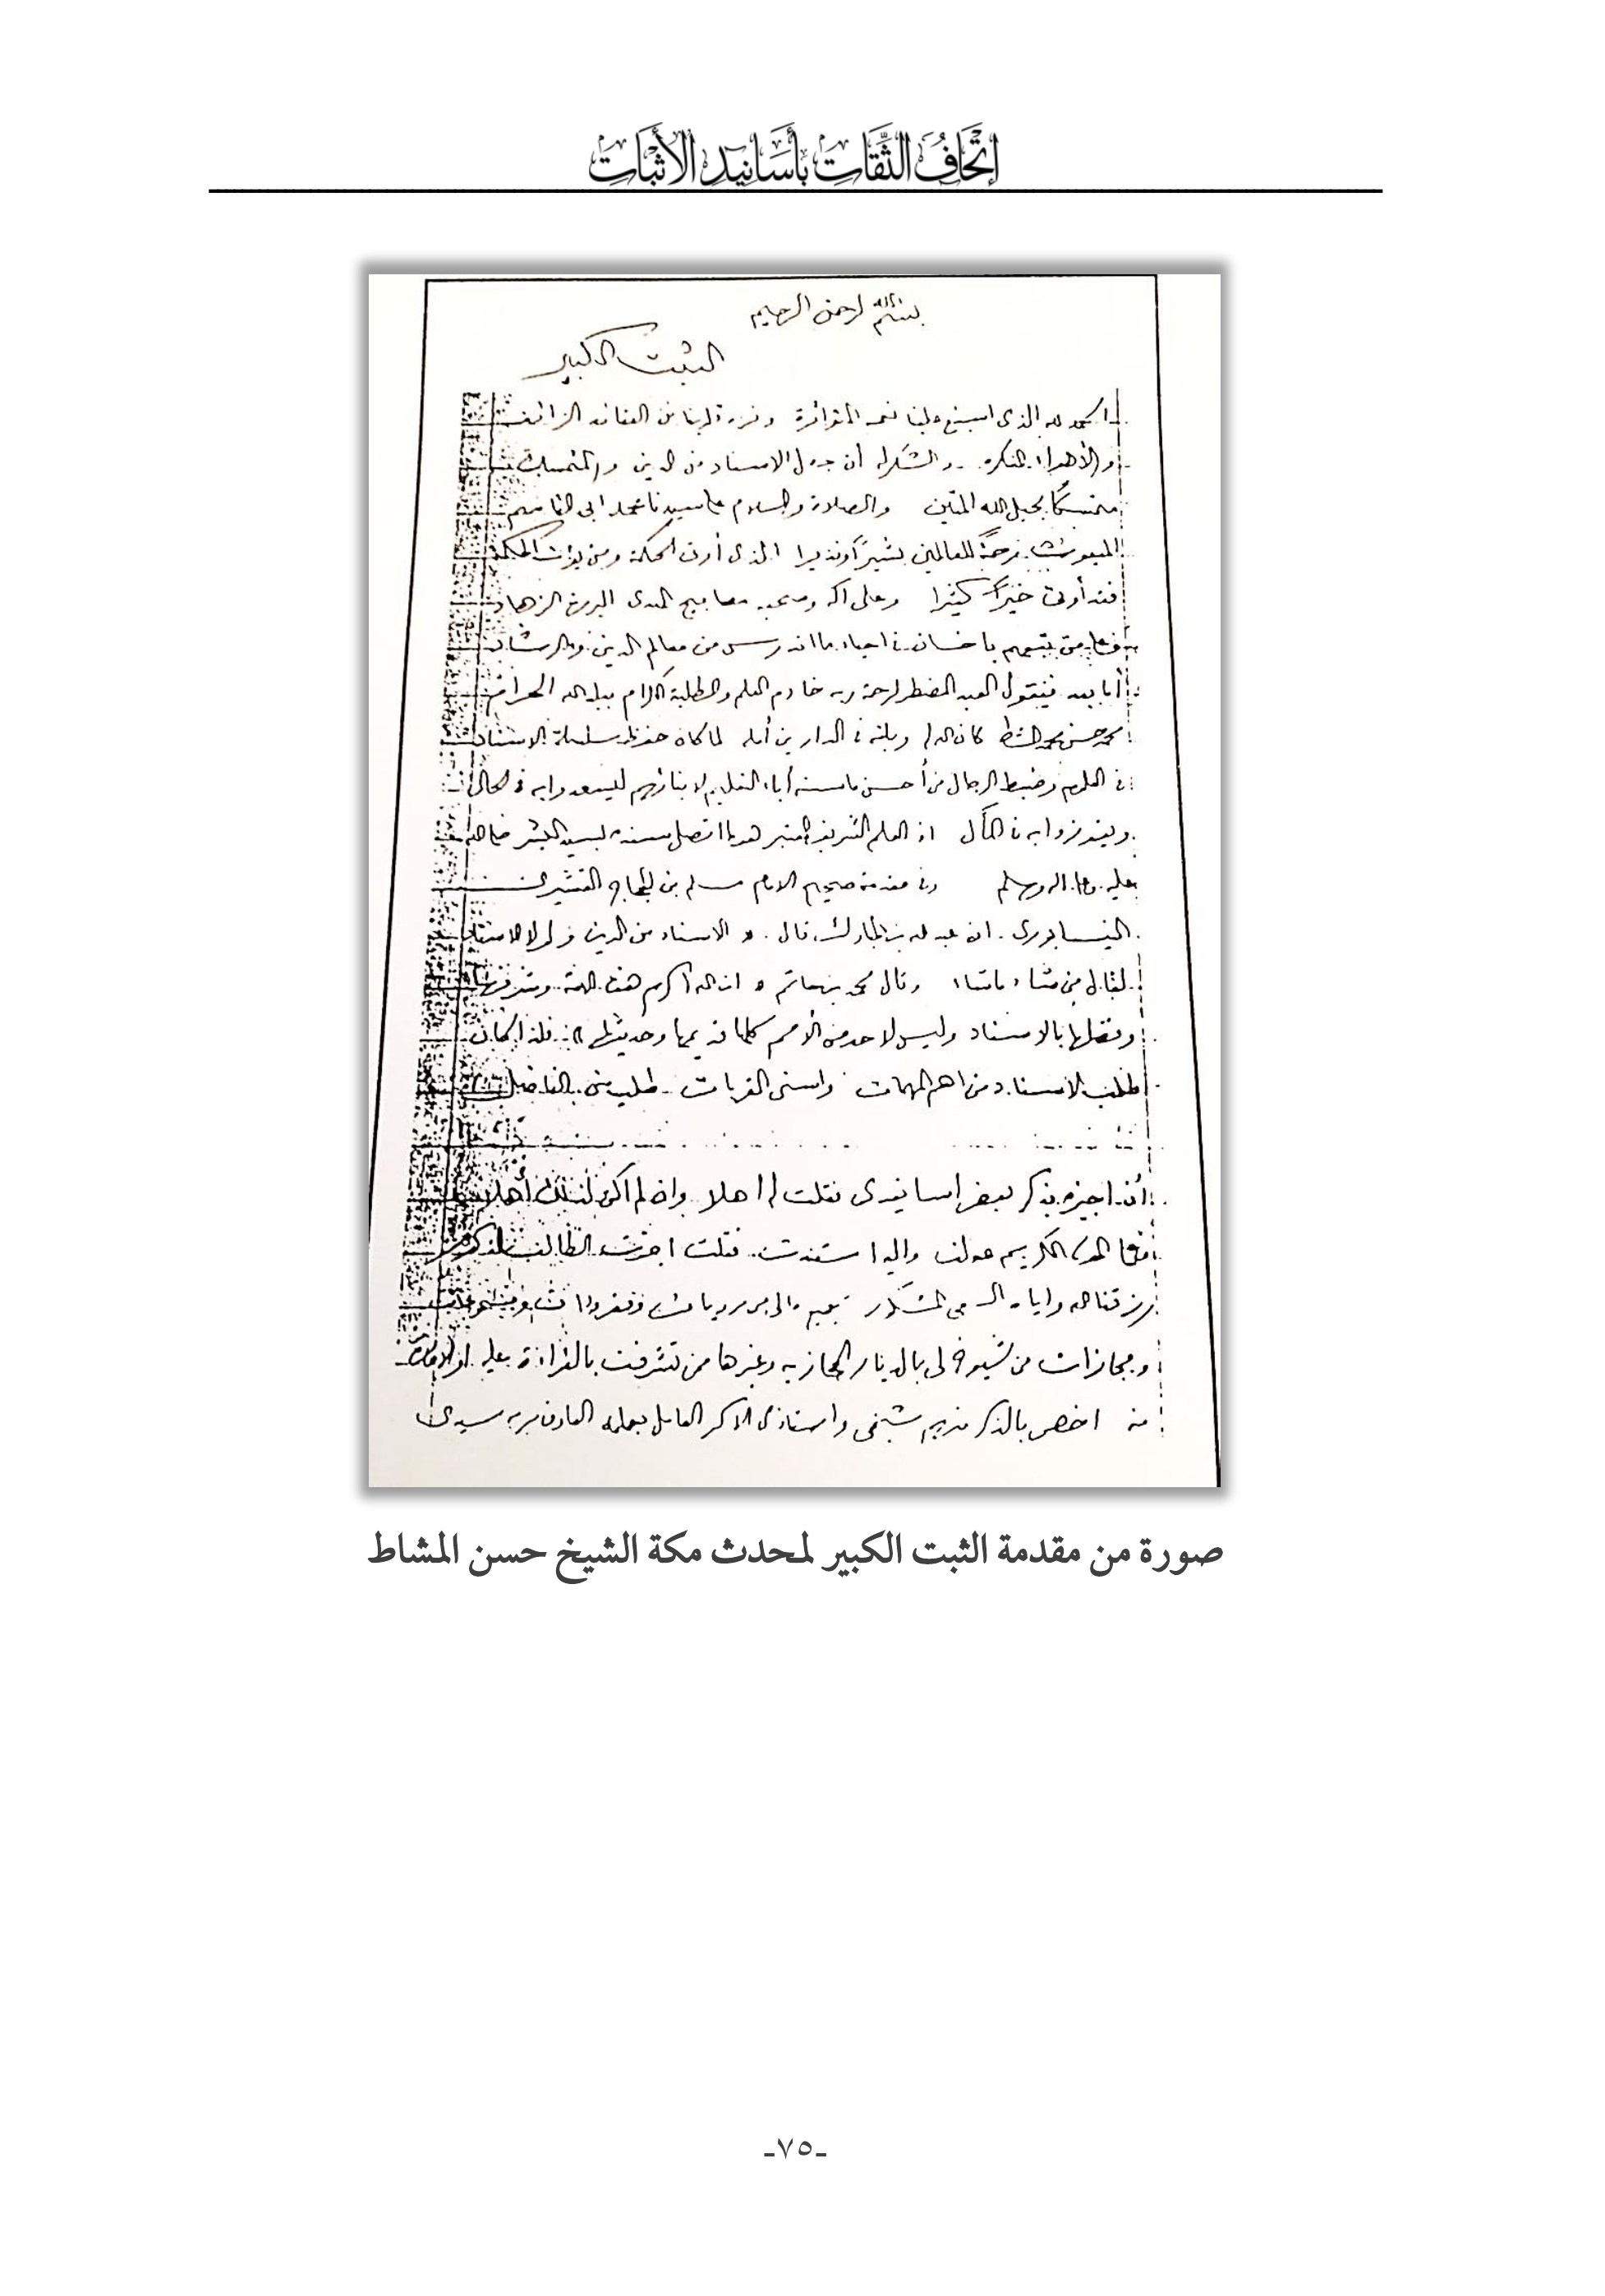 إتحاف الثقات بأسانيد الأثبات
بسم الله الرحمن الرحيم
الثبت الكبير
الحمد لله الذي اسبغ علينا نعمه المتواترة ونزه قلوبنا من العقائد الزائفة
والأهواء المنكرة والشكر له أن جعل الاسناد من الدين والمتمسك
متمسكًا بحبل الله المتين والصلاة والسلام على سيدنا محمد ابي القاسم
المبعوث رحمةً للعالمين بشيرًا ونذيرا الذي أوتي الحكمة ومن يؤت الحكمة
فقد أوتي خيرًا كثيرا وعلى آله وصحبه مصابيح الهدى البررة الزهاد
وعلى من تبعهم باحسان في احياء ما اندرس من معالم الدين والرشاد
أما بعد فيقول العبد المضطر لرحمة ربه خادم العلم والطلبة الكرام ببلد الله الحرام
محمد حسن محمد المشاط كان الله له وبلغه في الدارين أمله لما كان حفظ سلسلة الاسناد
في العلوم وضبط الرجال من أحسن ما سنه أباء التعليم لابنائهم ليسعدوا به في الحال
ويفوزوا به في المآل اذ العلم الشريف المعتبر هو ما اتصل سنده بسيد البشر صلى الله
عليه وعلى اله وسلم وفي مقدمة صحيح الامام مسلم بن الحجاج القشيري
النيسابوري ان عبد الله بن المبارك قال الاسناد من الدين ولولا الاسناد
لقال من شاء ما شاء وقال محمد بن حاتم ان الله أكرم هذه الامة وشرفها
وفضلها بالاسناد وليس لاحد من الأمم كلها قديمها وحديثها فلذا كان
طلب الاسناد من اهم المهمات واسنى القربات طلب مني الفاضل
أن اجيزه بذكر بعض اسانيدي فقلت له اهلا وان لم اكن لذلك أهلا
فعلى الله الكريم عولت واليه استندت فقلت اجزت الطالب المذكور
رزقنا الله واياه السعي المشكور بجميع مالي من مرويات ومقروءات ومسموعات
ومجازات من شيوخي بالديار الحجازيه وغيرها ممن تشرفت بالقراءة عليه او الاجازة
منه اخص بالذكر منهم شيخي واستاذي الاكبر العامل بعلمه العارف بربه سيدي
صورة من مقدمة الثبت الكبير لمحدث مكة الشيخ حسن المشاط
-٧٥-